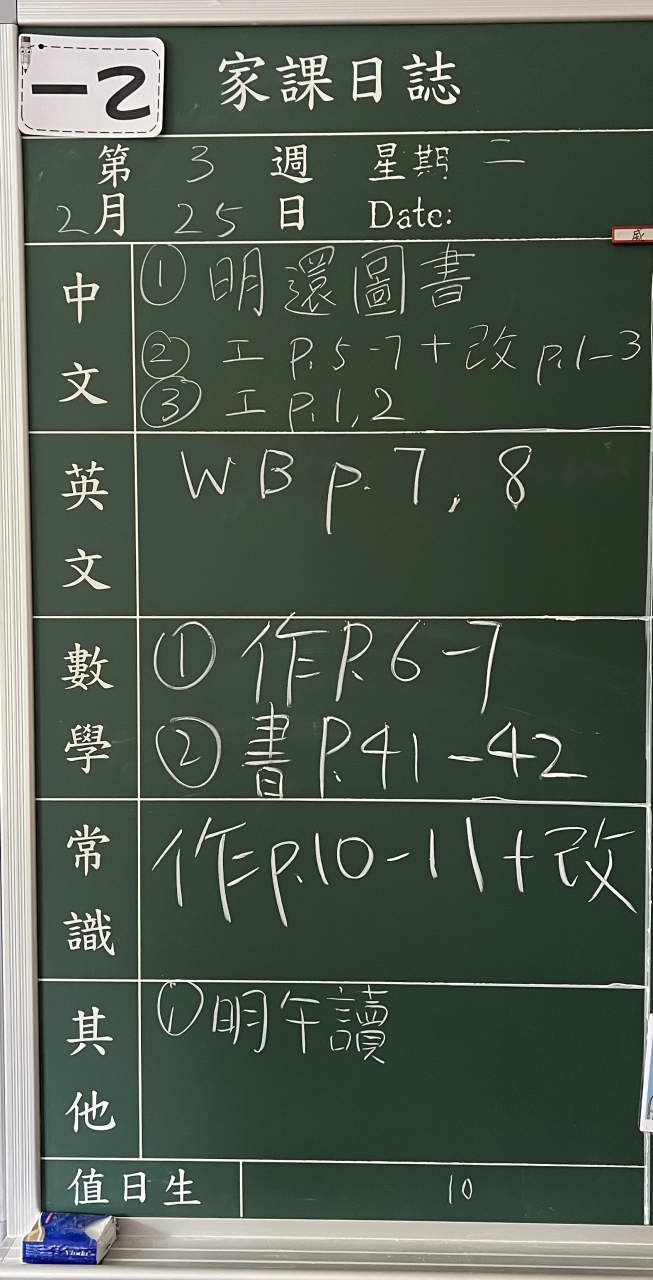 一乙
家課日誌
第 3 週 星期 二
2月 25 日 Date:
中文
① 明還圖書
② 工 p.5-7+改 p.1-3
③ 工 p.1,2
英文
WB p.7, 8
數學
① 作P.6-7
② 書P.41-42
常識
作p.10-11+改
其他
① 明午讀
值日生 10
Vinda